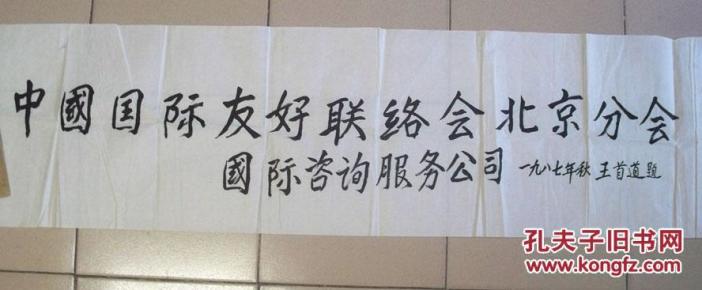 中國国际友好联络会北京分会
國际咨询服务公司 一九八七年秋 王首道题
孔夫子旧书网
www.kongfz.com